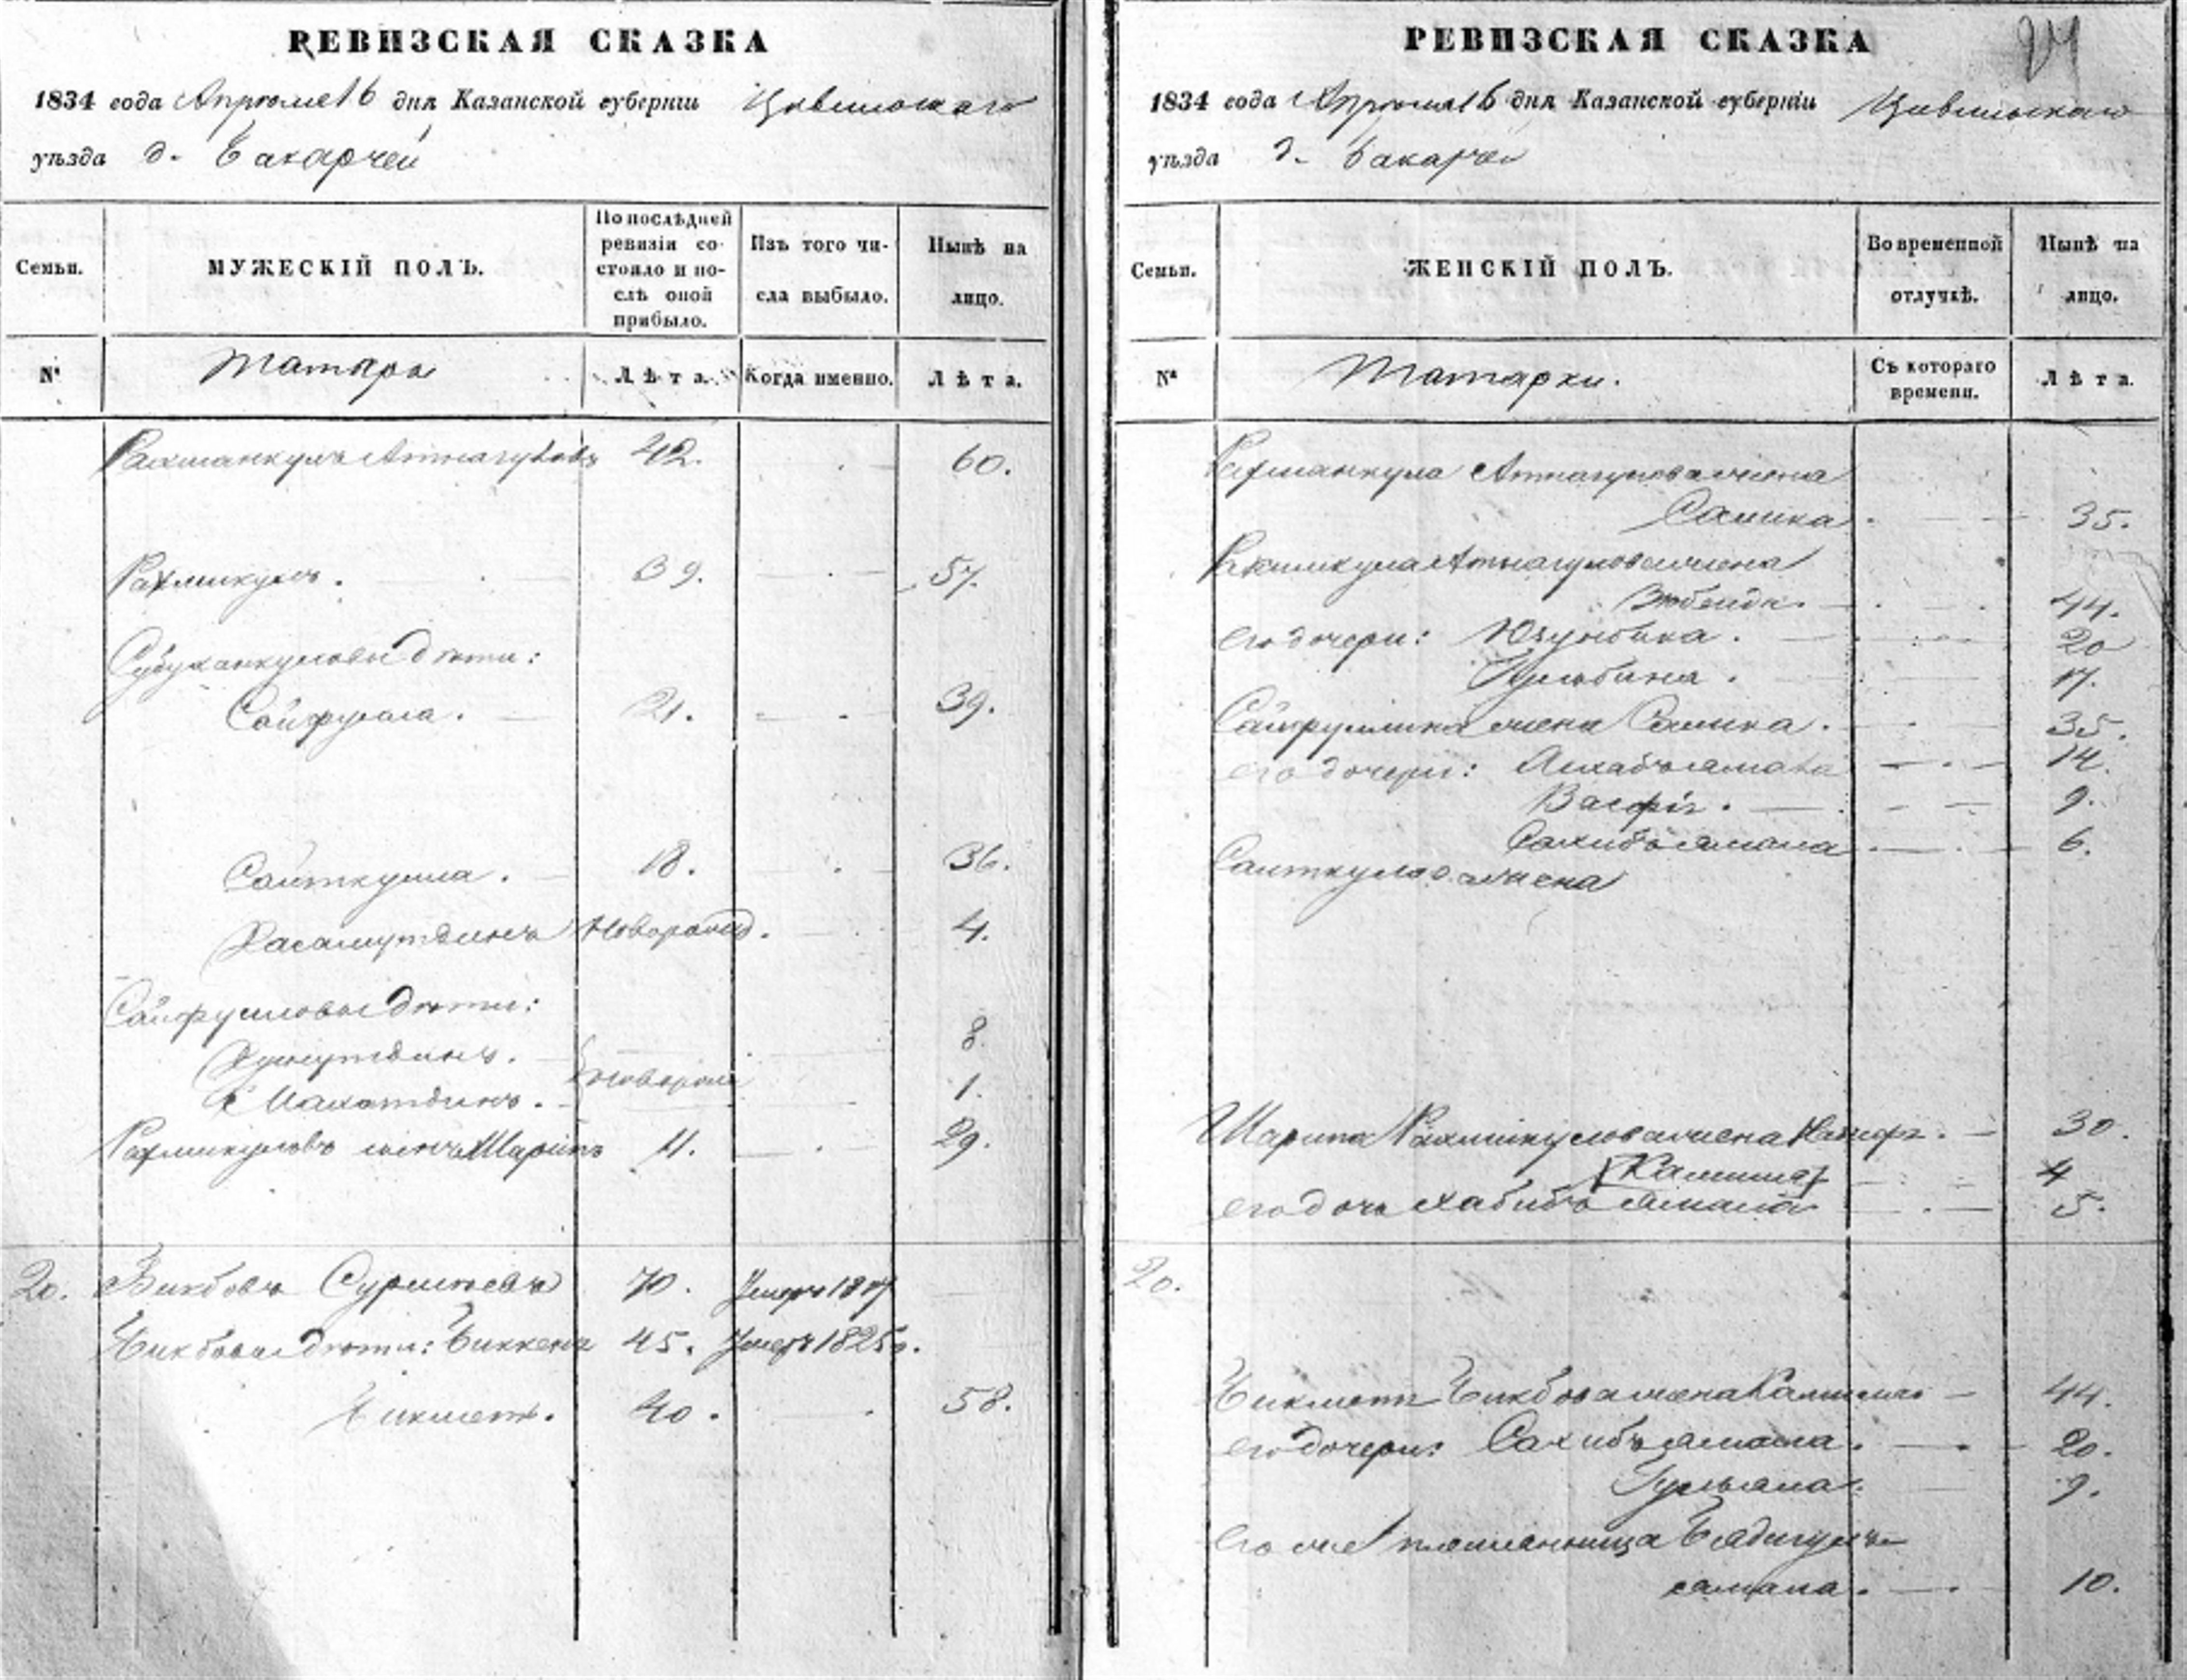 РЕВИЗСКАЯ СКАЗКА
1834 года Апрѣля 16 дня Казанской губерніи Цивильскаго
уѣзда д. Бакарчей
Семьи.
МУЖЕСКІЙ ПОЛЪ.
По послѣдней ревизіи со-
стояло и по-
слѣ оной
прибыло.
Изъ того чи-
сла выбыло.
Нынѣ на
лицо.
№
Татары
Лѣта.
Когда именно.
Лѣта.
Рахманкулъ Атнагуловъ 42. 60.
Рахмикулъ. 39. 57.
Субуханкуловы дѣти:
Сайфулла. 21. 39.
Саиткулла. 18. 36.
Хасамутдинъ Новорожд. 4.
Сайфулловы дѣти:
8.
новорожд
1.
Рахмикуловъ сынъ Шарипъ 11. 29.
20. Бикбовъ 70. Умеръ 18
Бикбовы дѣти: Биккеня 45. Умеръ 1825 г.
Бикметь. 40. 58.
РЕВИЗСКАЯ СКАЗКА
1834 года Апрѣля 16 дня Казанской губерніи Цивильскаго
уѣзда д. Бакарчей
Семьи.
ЖЕНСКІЙ ПОЛЪ.
Во временной
отлучкѣ.
Нынѣ на
лицо.
№
Татарки.
Съ котораго
времени.
Лѣта.
Рахманкула Атнагулова жена
Салика 35.
Рахмикула Атнагулова жена
Зюбейда. 44.
его дочери: Юзунбика. 20
Гульбика. 17.
Сайфуллина жена Салика. 35.
его дочери: 14.
Васфія. 9.
Сахибъямала 6.
Саиткулова жена
Шарипа Рахмикулова жена 30.
4
его дочь Хабибъямала 5.
20.
Бикметя Бикбова жена 44.
его дочери: Сахибъямала. 20.
Гульямала. 9.
его же племянница Бядигулъ-
ямала. 10.